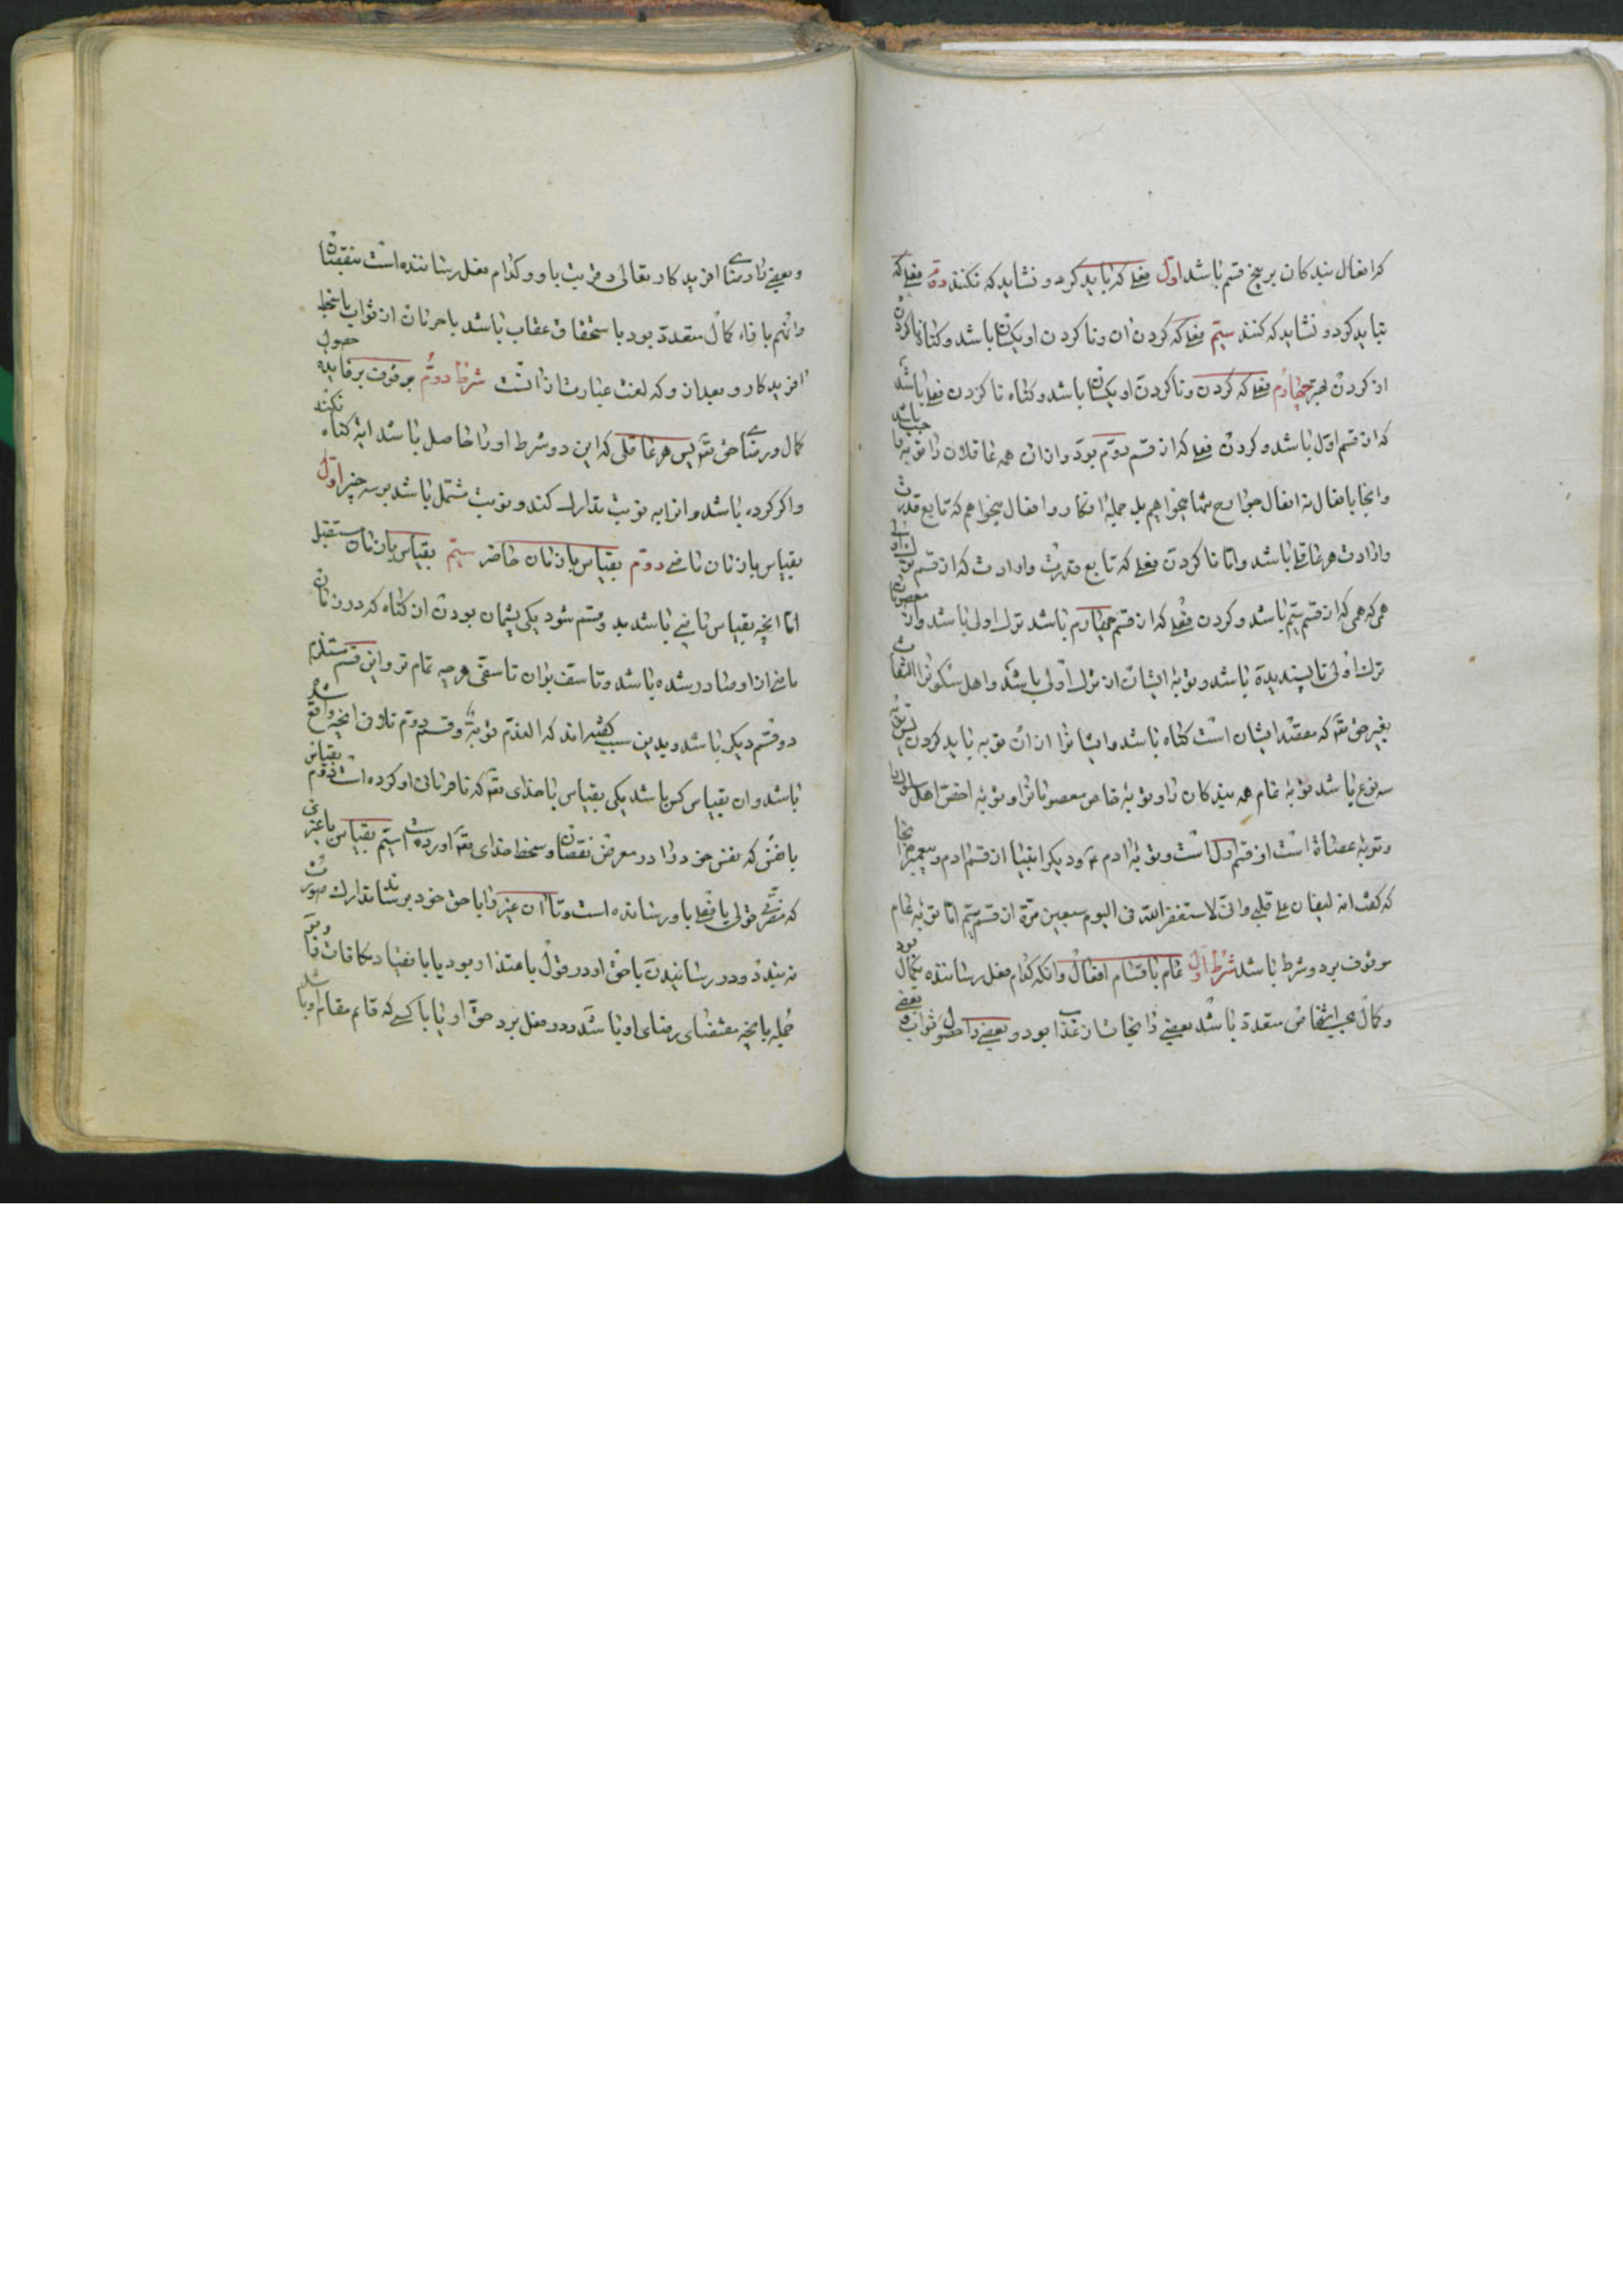 که افعال بندکان بر پنج قسم باشد اول فعلی که باید کرد و نشاید که نکنند دوم فعلی که
نباید کرد و نشاید که کنند سیم فعلی که کردن ان و ناکردن او یکسان باشد و کناه ناکردن
از کردن بهتر چهارم فعلی که کردن و ناکردن او یکسان باشد و کناه ناکردن فعلی باشد
که از قسم اول باشد و کردن فعلی که از قسم دوم بود و از ان همه عاقلان را توبه واجب باشد
و اینجا بافعال نه افعال جوارح تنها میخواهیم بل جملهٔ افکار و افعال میخواهم که تابع قدرت
و ارادت هر عاقلی باشد و اما ناکردن فعلی که تابع قدرت و ارادت که از قسم
که از قسم سیم باشد و کردن فعلی که از قسم چهارم باشد ترک اولی باشد و از معصومان
ترک اولی ناپسندیده باشد و توبهٔ ایشان از ترک اولی باشد و اهل سلوک را التفات
بغیر حق تع که مقصد ایشان است کناه باشد و ایشانرا از ان توبه باید کردن پس توبه
سه نوع باشد توبهٔ عام همه بندکان را و توبهٔ خاص معصومانرا و توبهٔ اخص اهل سلوک را
و توبهٔ عصاة است از قسم اول است و توبهٔ ادم ع و دیکر انبیا از قسم دوم و پیغمبر ما انجا
که کفت انه لیغان علی قلبی و انی لاستغفر الله فی الیوم سبعین مرة از قسم سیم اما توبهٔ عام
موقوف بر دو شرط باشد شرط اول علم باقسام افعال و انکه کدام فعل رساننده بکمال بود
و کمال بحسب اشخاص متعدد باشد بعضی را نجات از عذاب بود و بعضی را حصول ثواب و بعضی
و بعضی را رضای افریدکار تعالی و قربت باو و کدام فعل رساننده است بنقصان
و انهم بازاء کمال متعدد بود یا ستحقاق عقاب باشد یا حرمان از ثواب یا سخط
افریدکار و بعد از و که لعنت عبارت از انست شرط دوم وقوف بر فایده حصول
کمال و رضای حق تع پس هر عاقلی که این دو شرط او را حاصل باشد البته کناه نکند
و اکر کرده باشد و انرا به توبت تدارک کند و توبت مشتمل باشد بر سه چیز اول
بقیاس با زمان ماضی دوم بقیاس با زمان حاضر سیم بقیاس با زمان مستقبل
اما انچه بقیاس ماضی باشد بدو قسم شود یکی پشیمان بودن از کناه که در زمان
ماضی از او صادر شده باشد و تاسف بر ان تاسفی هر چه تمام تر و این قسم مستلزم
دو قسم دیکر باشد و بدین سبب کفته اند که الندم توبة و قسم دوم تلافی انچه واقع شده
باشد و ان بقیاس کس باشد یکی بقیاس با خدای تع که نافرمانی او کرده است دوم بقیاس
با نفس که نفس خود را در معرض نقصان و سخط خدای تع اورده است سیم بقیاس با غیری
که مضرتی قولی یا فعلی باو رسانده است و تا ان غیر را با حق خود نرساند تدارک صورت
نه بندد و در رسانیدن با حق او در قول یا عتذار بود یا با نقیاد مکافات را و فی
جمله بانچه مقتضای رضای او باشد و در فعل برد حق او یا با کسی که قایم مقام او باشد